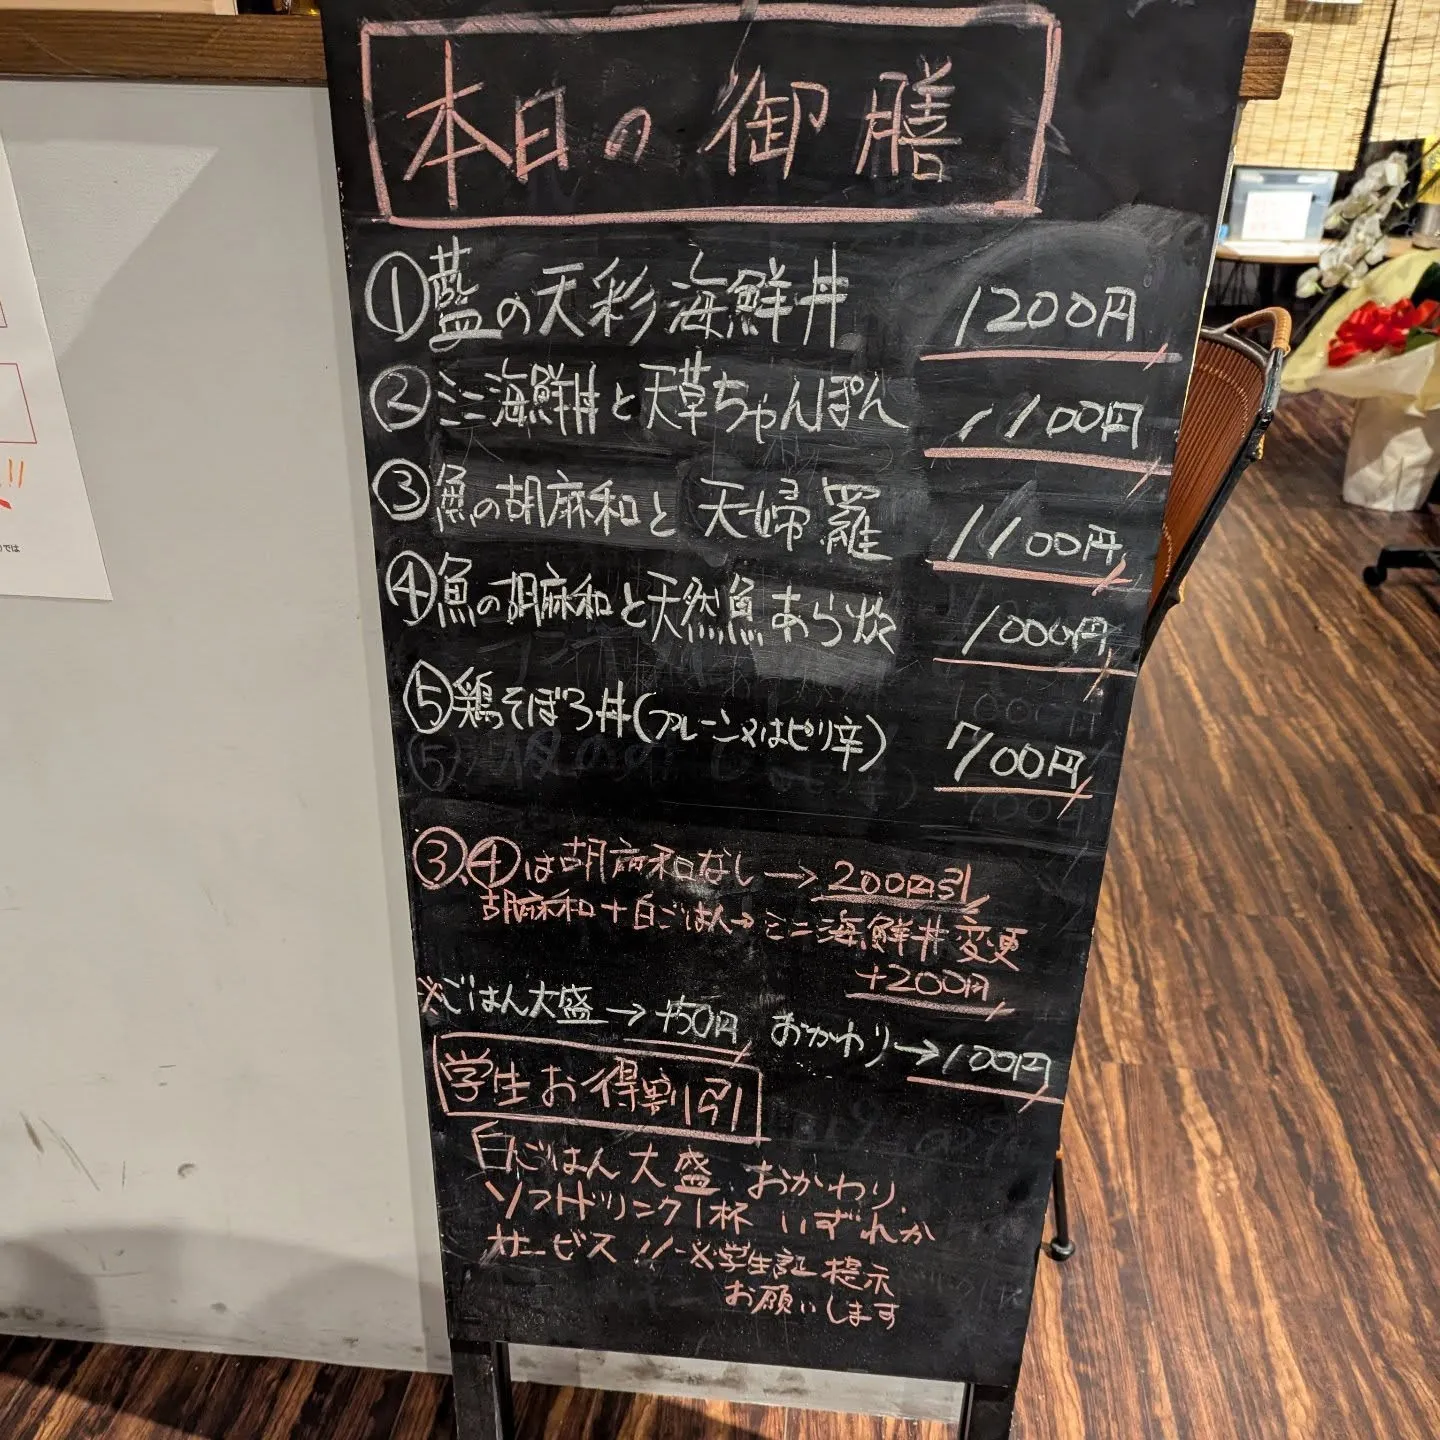 本日の御膳
①藍の天彩海鮮丼 1200円
②ミニ海鮮丼と天草ちゃんぽん 1100円
③魚の胡麻和と天婦羅 1100円
④魚の胡麻和と天然魚あら炊 1000円
⑤鶏そぼろ丼(プレーン又はピリ辛) 700円
③、④は胡麻和なし→200円引
胡麻和+白ごはん→ミニ海鮮丼変更
+200円
※ごはん大盛→+50円 おかわり→100円
学生お得割引
白ごはん大盛 おかわり
ソフトドリンク1杯 いずれか
サービス!!※学生証提示
お願いします
では